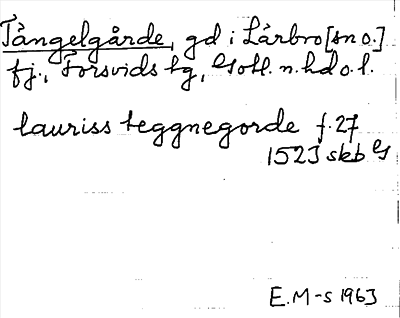 Tängelgårde, gd i Lärbro [sn o.]
fj., Forsvids tg, Gotl. n. hd o. l.
lauriss teggnegorde f. 27
1523 skb G
E. M-s 1963